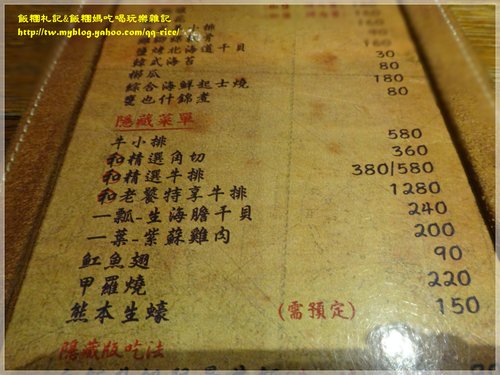 飯糰札記&飯糰媽吃喝玩樂雜記
http://tw.myblog.yahoo.com/qq-rice/
160
90
160
鹽烤北海道干貝
韓式海苔 30
櫛瓜 80
綜合海鮮起士燒 180
甕也什錦煮 80
隱藏菜單
牛小排 580
和精選角切 360
和精選牛排 380/580
和老饕特享牛排 1280
一瓢-生海膽干貝 240
一葉-紫蘇雞肉 200
魟魚翅 90
甲羅燒 220
熊本生蠔 (需預定) 150
隱藏版吃法